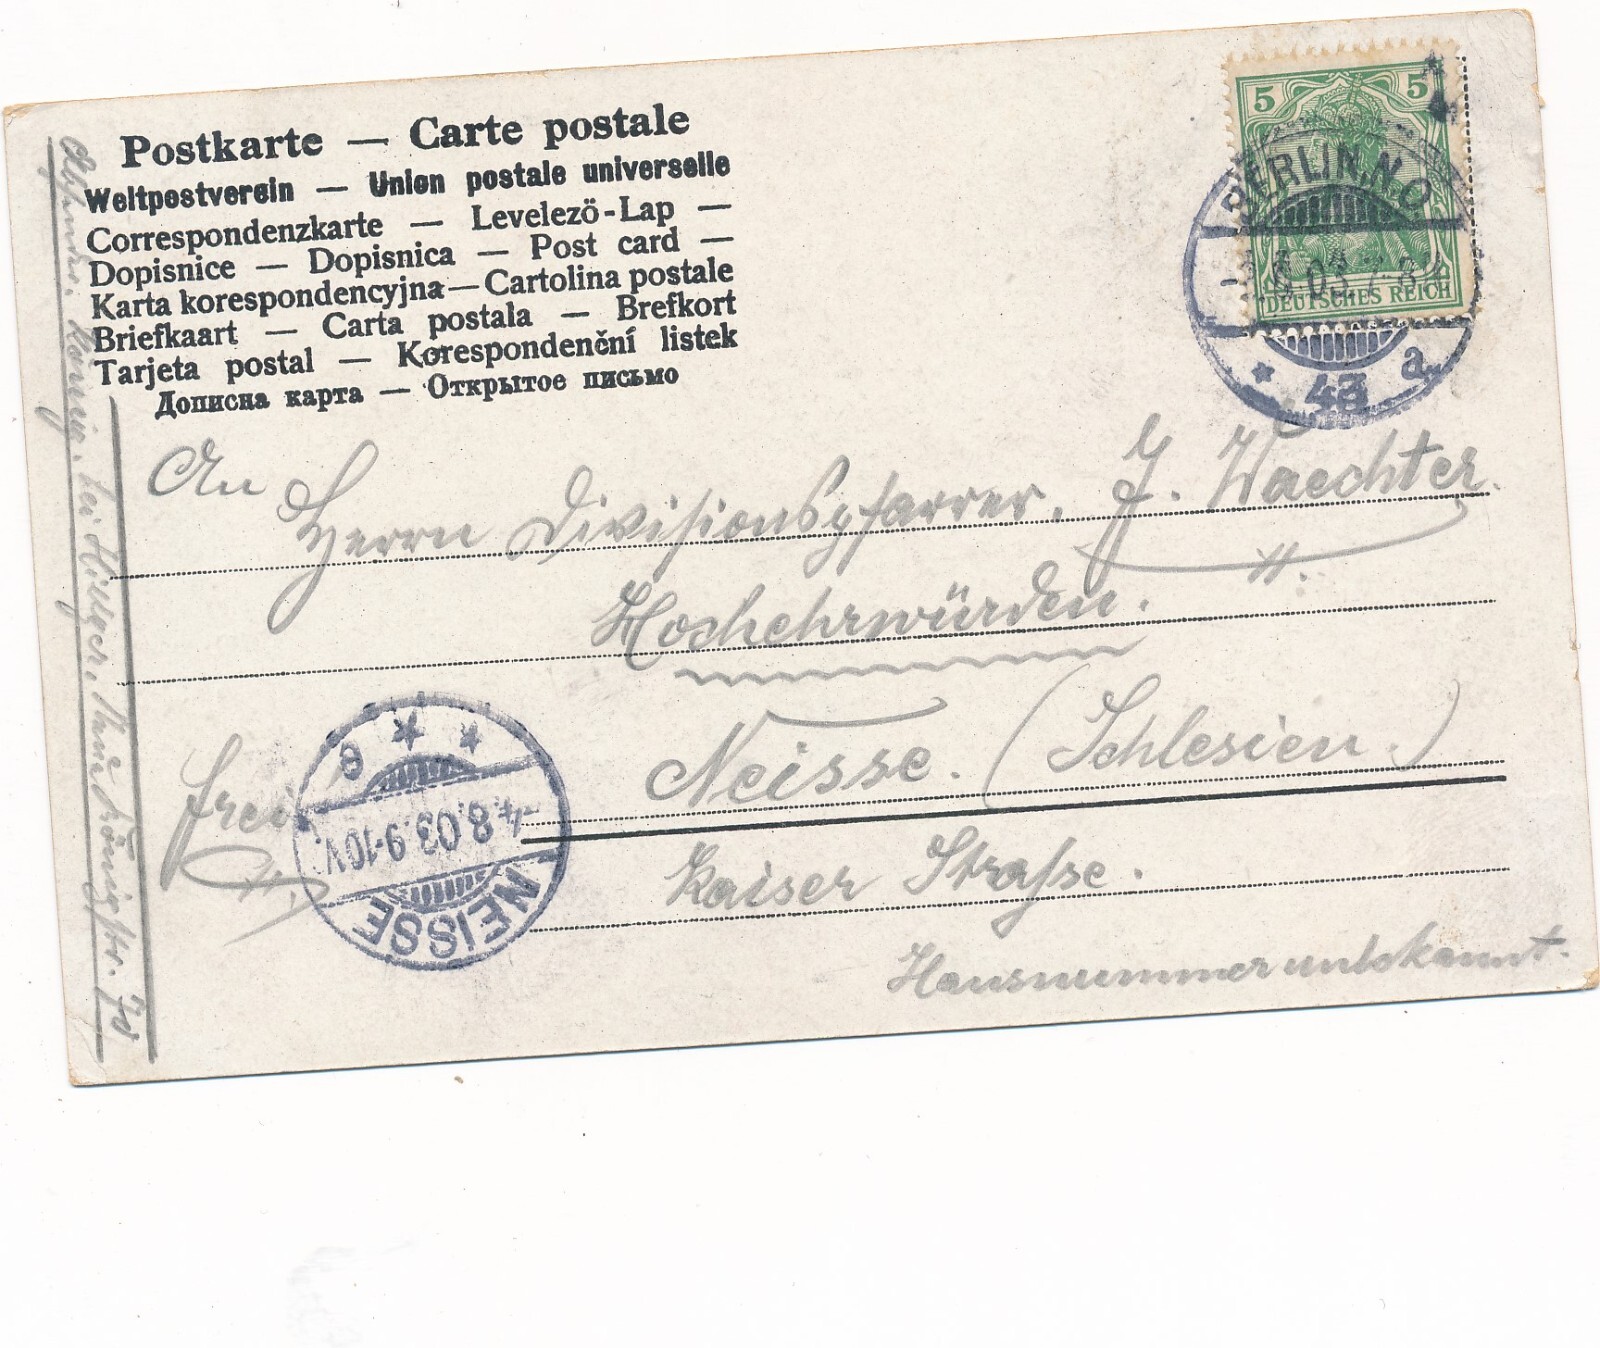 Postkarte — Carte postale
Weltpostverein — Union postale universelle
Correspondenzkarte — Levelező-Lap —
Dopisnice — Dopisnica — Post card —
Karta korespondencyjna — Cartolina postale
Briefkaart — Carta postala — Brefkort
Tarjeta postal — Korespondenční listek
Дописна карта — Открытое письмо
5 5
DEUTSCHES REICH
BERLIN.N.O
* 43 a.
An
Herrn Divisionspfarrer. J. Waechter.
Hochehrwürden.
Neisse. (Schlesien.)
Kaiser Strasse.
Hausnummer unbekannt.
frei
NEISSE
4.8.03.9-10V.
* * e
Absender. König. bei Hilger. Neue Königstr. 70